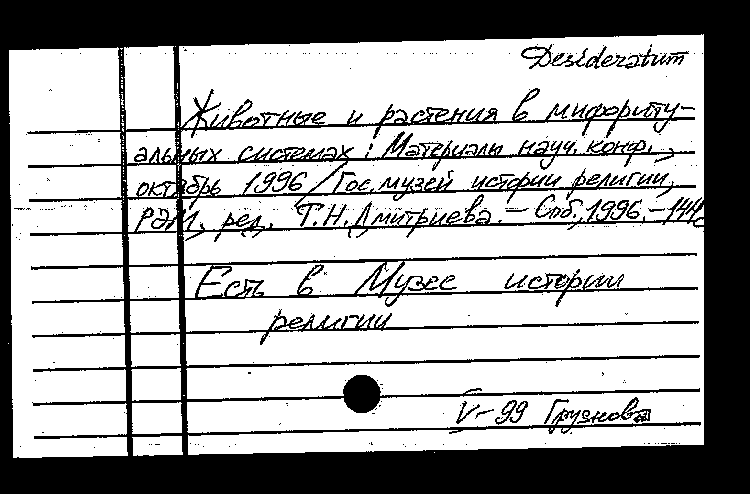 Desideratum
Животные и растения в мифориту-
альных системах: Материалы науч. конф.,
октябрь 1996/Гос. музей истории религии,
РЭМ, ред. Т.Н. Дмитриева. – Спб, 1996. – 144с
Есть в Музее истории
религии
V-99 Грузнова